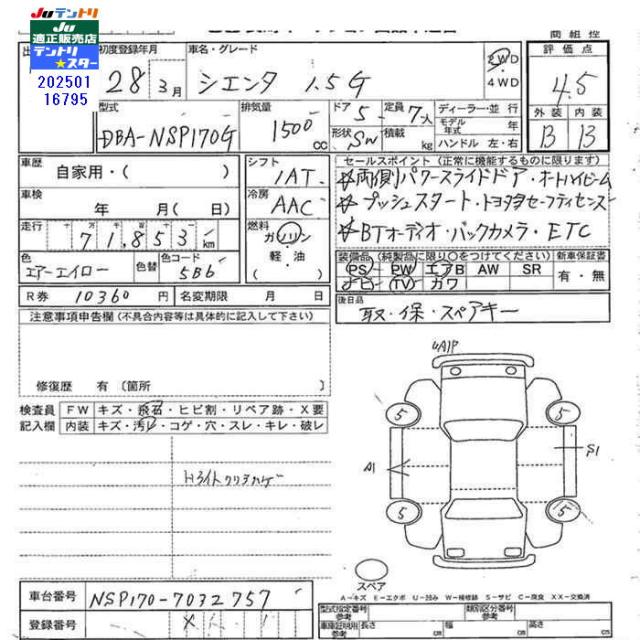 Juテントリ
Ju
適正販売店
テントリ
★スター
202501
16795
初度登録年月
28年 3月
車名・グレード
シエンタ 1.5G
2WD
4WD
商組控
評価点
4.5
外装 内装
B B
型式
DBA-NSP170G
排気量
1500cc
ドア 5
形状 SW
定員 7人
積載 kg
ディーラー・並行
モデル年式 年
ハンドル 左・右
車歴
自家用・( )
シフト
IAT
車検
年 月( 日)
冷房
AAC
走行
71,853km
燃料
ガソリン
軽・油
( )
色
エアーイエロー
色替
色コード
5B6
セールスポイント(正常に機能するものに限ります)
☆両側パワースライドドア・オートハイビーム
☆プッシュスタート・トヨタセーフティセンス
☆BTオーディオ・バックカメラ・ETC
装備品(純製品に限り○をつけてください)
新車保証書
PS PW エアB AW SR
ナビ (TV) カワ
有・無
R券 10360円
名変期限 月 日
後日品
取・保・スペアキー
注意事項申告欄(不具合内容等は具体的に記入して下さい)
修復歴 有(箇所
検査員
記入欄
FW キズ・飛石・ヒビ割・リペア跡・X要
内装 キズ・汚レ・コゲ・穴・スレ・キレ・破レ
Hライトクリアハゲ
UA1P
5
5
A1
S1
5
5
スペア
A-キズ E-エクボ U-凹み W-補修跡 S-サビ C-腐食 XX-交換済
車台番号
NSP170-7032757
登録番号
型式指定番号
類別区分番号
車庫証明用参考
長さ cm
幅 cm
高さ cm